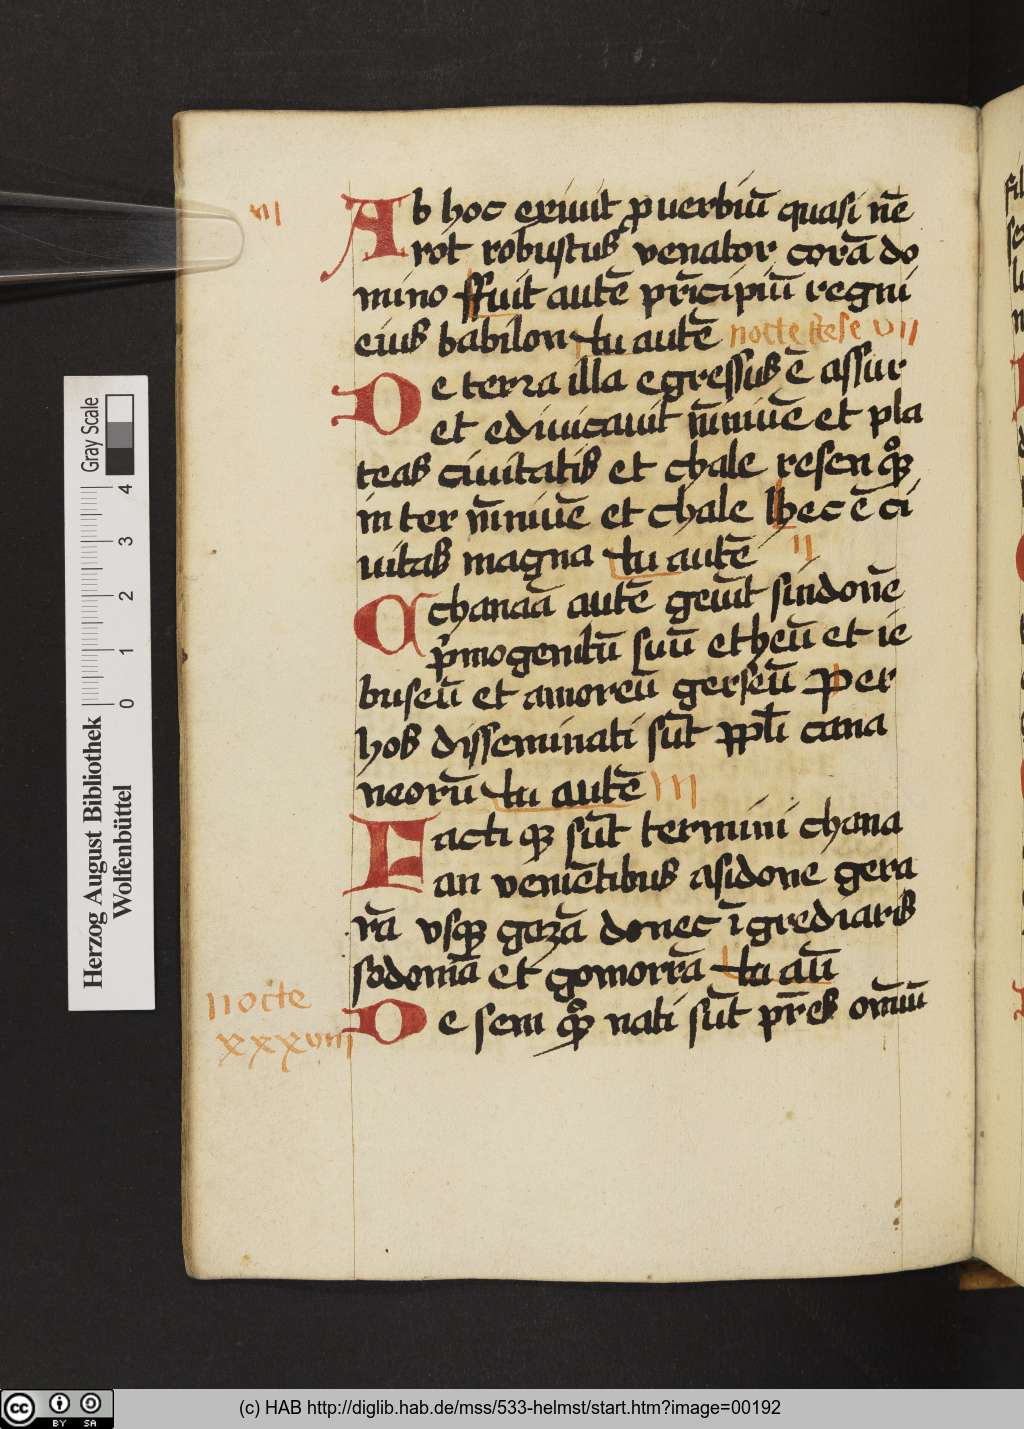 vii
Ab hoc exiuit ꝓuerbiū quasi nē
rot robustus venator corā do
mino ffuit autē pͥncipiū regni
eius babilon tu autē nocte VII
De terra illa egressus ē assur
et edivicauit niniuē et pla
teas ciuitatis et chale resen qͦꝫ
inter niniuē et chale hec ē ci
uitas magna tu autē II
Achanaā autē geuīt sindonē
pͥmogenitū suū etheū et ie
buseū et amoreū gerseū Per
hos disseminati sūt ppl̄i cana
neorū tu autē III
Factiqꝫ sūt termini chana
an veniētibus asidone gera
rā vsqꝫ gazā donec īgrediaris
sodomā et gomorrā tu aū
nocte
xxxviiii
De sem qͦꝫ nati sūt pr̄es om̄iū
Herzog August Bibliothek
Wolfenbüttel
0 1 2 3 4
Gray Scale
cc BY SA
(c) HAB http://diglib.hab.de/mss/533-helmst/start.htm?image=00192